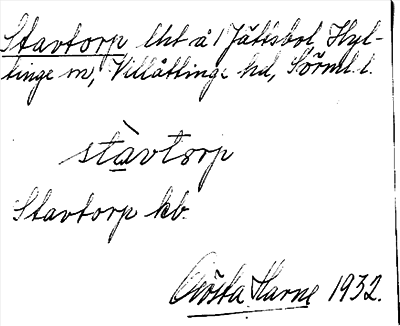 Stavtorp lht å 1 Jättsbol, Hyl-
tinge sn, Villåttinge hd, Sörml. l.
stàvtorp
Stavtorp kb.
Gösta Harne 1932.